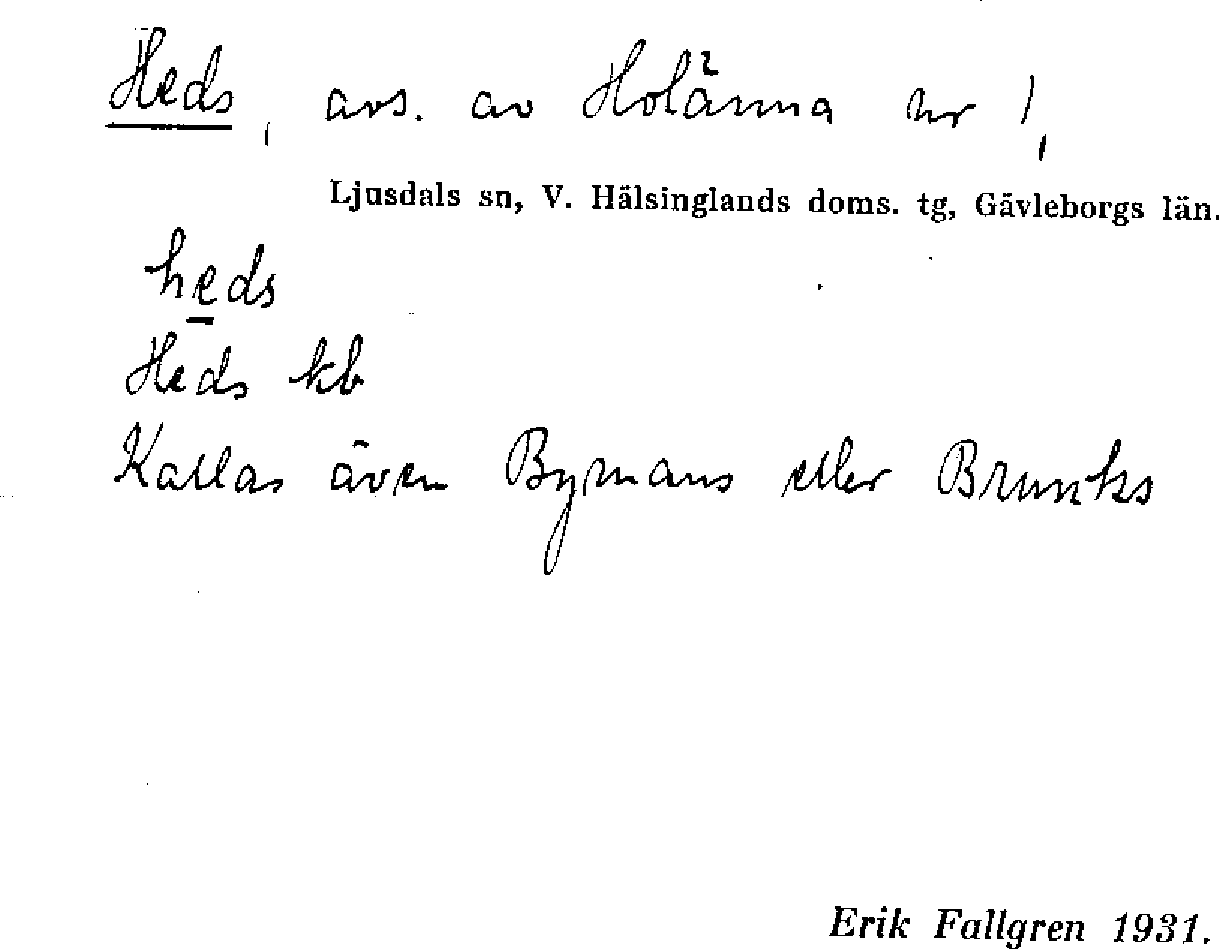 Heds, avs. av Holänna nr 1,
Ljusdals sn, V. Hälsinglands doms. tg, Gävleborgs län.
heds
Heds kb
Kallas även Bymans eller Brunks
Erik Fallgren 1931.